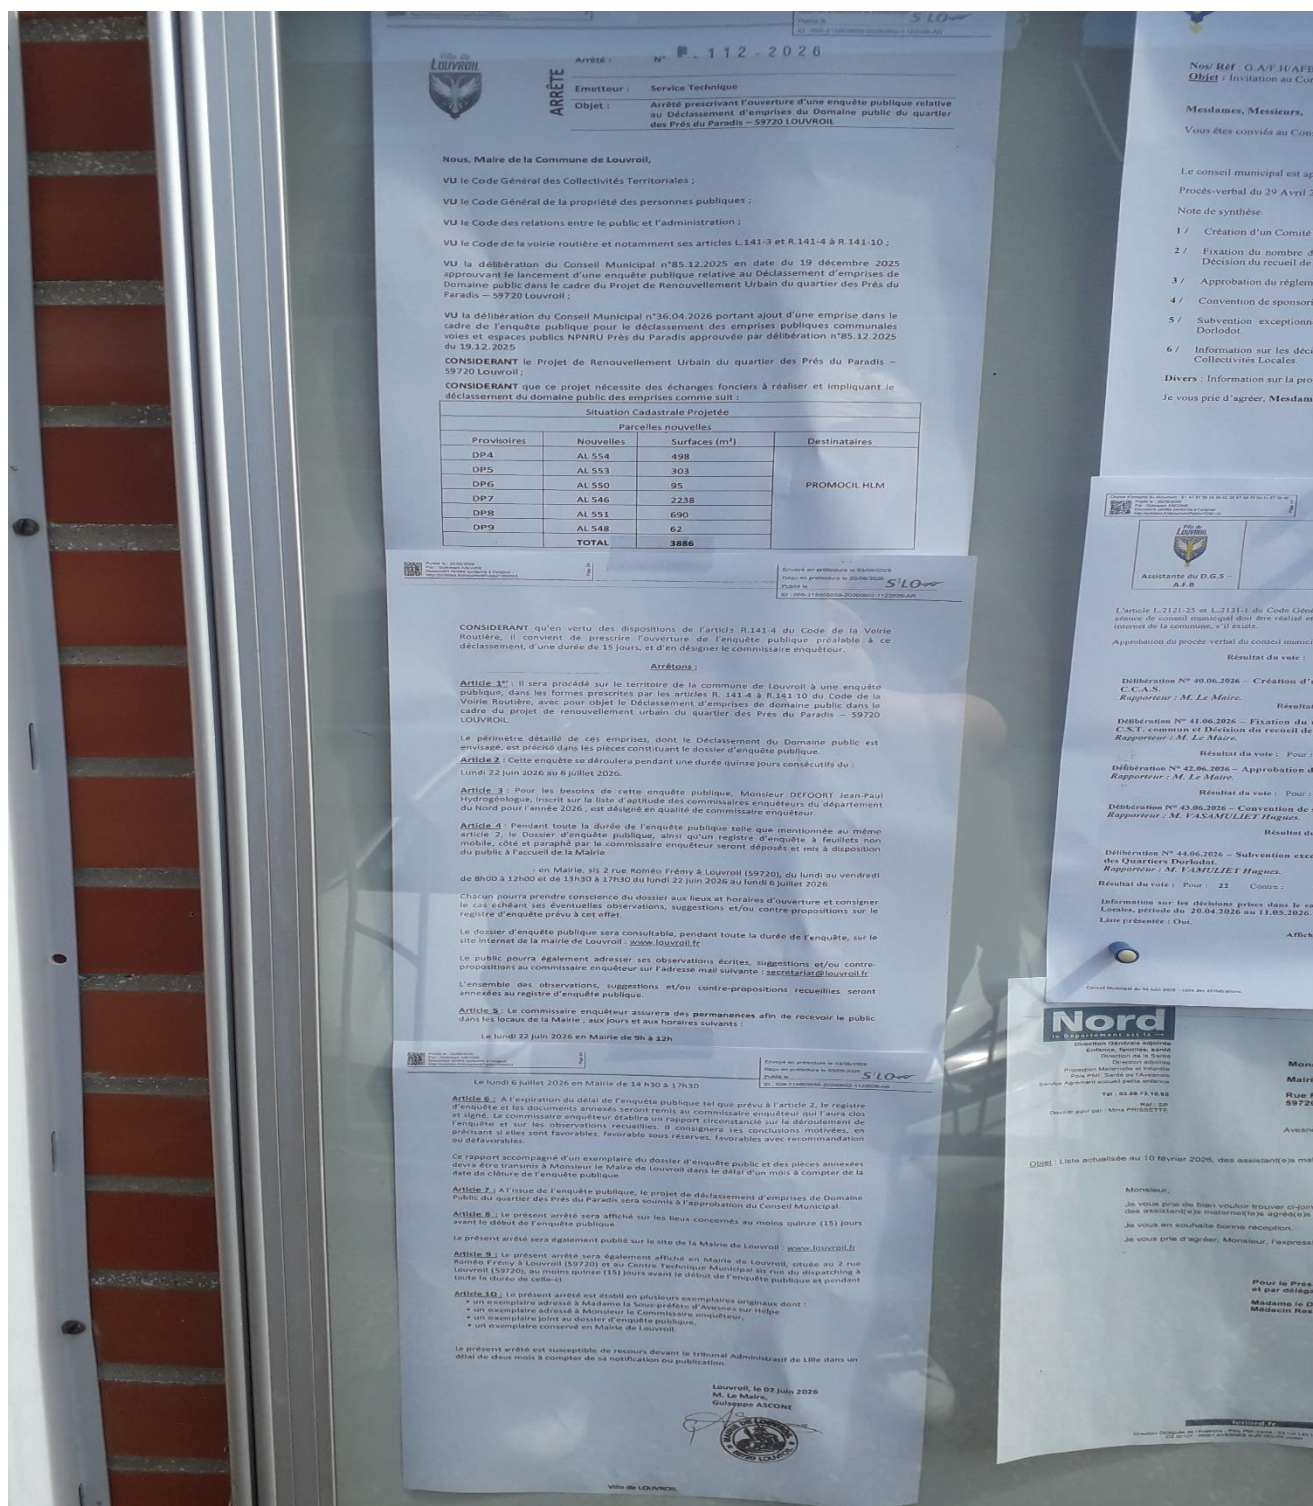 Publié le
S'LO
Ville de
LOUVROIL
ARRÊTE
Arrêté :
N° P. 112-2026
Emetteur :
Service Technique
Objet :
Arrêté prescrivant l'ouverture d'une enquête publique relative
au Déclassement d'emprises du Domaine public du quartier
des Prés du Paradis – 59720 LOUVROIL
Nous, Maire de la Commune de Louvroil,
VU le Code Général des Collectivités Territoriales ;
VU le Code Général de la propriété des personnes publiques ;
VU le Code des relations entre le public et l'administration ;
VU le Code de la voirie routière et notamment ses articles L.141-3 et R.141-4 à R.141-10 ;
VU la délibération du Conseil Municipal n°85.12.2025 en date du 19 décembre 2025
approuvant le lancement d'une enquête publique relative au Déclassement d'emprises de
Domaine public dans le cadre du Projet de Renouvellement Urbain du quartier des Prés du
Paradis – 59720 Louvroil ;
VU la délibération du Conseil Municipal n°36.04.2026 portant ajout d'une emprise dans le
cadre de l'enquête publique pour le déclassement des emprises publiques communales
voies et espaces publics NPNRU Près du Paradis approuvée par délibération n°85.12.2025
du 19.12.2025
CONSIDERANT le Projet de Renouvellement Urbain du quartier des Prés du Paradis –
59720 Louvroil ;
CONSIDERANT que ce projet nécessite des échanges fonciers à réaliser et impliquant le
déclassement du domaine public des emprises comme suit :
Situation Cadastrale Projetée
Parcelles nouvelles
Provisoires Nouvelles Surfaces (m²) Destinataires
DP4 AL 554 498
DP5 AL 553 303
DP6 AL 550 95 PROMOCIL HLM
DP7 AL 546 2238
DP8 AL 551 690
DP9 AL 548 62
TOTAL 3886
Envoyé en préfecture le 03/06/2026
Reçu en préfecture le 03/06/2026
Publié le
S'LO
CONSIDERANT qu'en vertu des dispositions de l'article R.141-4 du Code de la Voirie
Routière, il convient de prescrire l'ouverture de l'enquête publique préalable à ce
déclassement, d'une durée de 15 jours, et d'en désigner le commissaire enquêteur.
Arrêtons :
Article 1er : Il sera procédé sur le territoire de la commune de Louvroil à une enquête
publique, dans les formes prescrites par les articles R. 141-4 à R.141-10 du Code de la
Voirie Routière, avec pour objet le Déclassement d'emprises de domaine public dans le
cadre du projet de renouvellement urbain du quartier des Prés du Paradis – 59720
LOUVROIL.
Le périmètre détaillé de ces emprises, dont le Déclassement du Domaine public est
envisagé, est précisé dans les pièces constituant le dossier d'enquête publique.
Article 2 : Cette enquête se déroulera pendant une durée quinze jours consécutifs du :
Lundi 22 juin 2026 au 6 juillet 2026.
Article 3 : Pour les besoins de cette enquête publique, Monsieur DEFOORT Jean-Paul
Hydrogéologue, inscrit sur la liste d'aptitude des commissaires enquêteurs du département
du Nord pour l'année 2026 , est désigné en qualité de commissaire enquêteur
Article 4 : Pendant toute la durée de l'enquête publique telle que mentionnée au même
article 2, le Dossier d'enquête publique, ainsi qu'un registre d'enquête à feuillets non
mobile, côté et paraphé par le commissaire enquêteur seront déposés et mis à disposition
du public à l'accueil de la Mairie
- en Mairie, sis 2 rue Roméo Frémy à Louvroil (59720), du lundi au vendredi
de 8h00 à 12h00 et de 13h30 à 17h30 du lundi 22 juin 2026 au lundi 6 juillet 2026.
Chacun pourra prendre conscience du dossier aux lieux et horaires d'ouverture et consigner
le cas échéant ses éventuelles observations, suggestions et/ou contre-propositions sur le
registre d'enquête prévu à cet effet.
Le dossier d'enquête publique sera consultable, pendant toute la durée de l'enquête, sur le
site internet de la mairie de Louvroil : www.louvroil.fr
Le public pourra également adresser ses observations écrites, suggestions et/ou contre-
propositions au commissaire enquêteur sur l'adresse mail suivante : secretariat@louvroil.fr
L'ensemble des observations, suggestions et/ou contre-propositions recueillies seront
annexées au registre d'enquête publique.
Article 5 : Le commissaire enquêteur assurera des permanences afin de recevoir le public
dans les locaux de la Mairie , aux jours et aux horaires suivants :
Le lundi 22 juin 2026 en Mairie de 9h à 12h
Envoyé en préfecture le 03/06/2026
Reçu en préfecture le 03/06/2026
Publié le
S'LO
Le lundi 6 juillet 2026 en Mairie de 14 h30 à 17h30
Article 6 : A l'expiration du délai de l'enquête publique tel que prévu à l'article 2, le registre
d'enquête et les documents annexés seront remis au commissaire enquêteur qui l'aura clos
et signé. Le commissaire enquêteur établira un rapport circonstancié sur le déroulement de
l'enquête et sur les observations recueillies. Il consignera ses conclusions motivées, en
précisant si elles sont favorables, favorable sous réserves, favorables avec recommandation
ou défavorables.
Ce rapport accompagné d'un exemplaire du dossier d'enquête public et des pièces annexées
devra être transmis à Monsieur le Maire de Louvroil dans le délai d'un mois à compter de la
date de clôture de l'enquête publique.
Article 7 : A l'issue de l'enquête publique, le projet de déclassement d'emprises de Domaine
Public du quartier des Prés du Paradis sera soumis à l'approbation du Conseil Municipal.
Article 8 : Le présent arrêté sera affiché sur les lieux concernés au moins quinze (15) jours
avant le début de l'enquête publique.
Le présent arrêté sera également publié sur le site de la Mairie de Louvroil : www.louvroil.fr
Article 9 : Le présent arrêté sera également affiché en Mairie de Louvroil, située au 2 rue
Roméo Frémy à Louvroil (59720) et au Centre Technique Municipal sis rue du dispatching à
Louvroil (59720), au moins quinze (15) jours avant le début de l'enquête publique et pendant
toute la durée de celle-ci.
Article 10 : Le présent arrêté est établi en plusieurs exemplaires originaux dont :
• un exemplaire adressé à Madame la Sous-préfète d'Avesnes sur Helpe
• un exemplaire adressé à Monsieur le Commissaire enquêteur,
• un exemplaire joint au dossier d'enquête publique,
• un exemplaire conservé en Mairie de Louvroil.
Le présent arrêté est susceptible de recours devant le tribunal Administratif de Lille dans un
délai de deux mois à compter de sa notification ou publication.
Louvroil, le 02 juin 2026
M. Le Maire,
Guiseppe ASCONE
MAIRIE DE LOUVROIL
59720 LOUVROIL
Ville de LOUVROIL
Nos/ Réf : G.A/F.H/AFB
Objet : Invitation au Con
Mesdames, Messieurs,
Vous êtes conviés au Cons
Le conseil municipal est ap
Procès-verbal du 29 Avril 2
Note de synthèse.
1 / Création d'un Comité
2 / Fixation du nombre d
Décision du recueil de
3 / Approbation du règlem
4 / Convention de sponsori
5 / Subvention exceptionn
Dorlodot.
6 / Information sur les déci
Collectivités Locales.
Divers : Information sur la pro
Je vous prie d'agréer, Mesdam
Ville de
LOUVROIL
Assistante du D.G.S –
A.F.B
L'article L.2121-25 et L.2131-1 du Code Géné
séance de conseil municipal doit être réalisé et
internet de la commune, s'il existe.
Approbation du procès verbal du conseil munici
Résultat du vote :
Délibération N° 40.06.2026 – Création d'u
C.C.A.S.
Rapporteur : M. Le Maire.
Résultat
Délibération N° 41.06.2026 – Fixation du
C.S.T. commun et Décision du recueil de
Rapporteur : M. Le Maire.
Résultat du vote : Pour :
Délibération N° 42.06.2026 – Approbation d
Rapporteur : M. Le Maire.
Résultat du vote : Pour :
Délibération N° 43.06.2026 – Convention de
Rapporteur : M. VASAMULIET Hugues.
Résultat du
Délibération N° 44.06.2026 – Subvention exce
des Quartiers Dorlodot.
Rapporteur : M. VAMULIET Hugues.
Résultat du vote : Pour : 22 Contre :
Information sur les décisions prises dans le ca
Locales, période du 20.04.2026 au 11.05.2026.
Liste présentée : Oui.
Affich
Nord
le Département est là
Direction Générale adjointe
Enfance, familles, santé
Direction de la Santé
Direction adjointe
Protection Maternelle et Infantile
Pôle PMI, Santé de l'Avesnois
Service Agrément accueil petite enfance
Réf : SP
Dossier suivi par : Mme PRISSETTE
Mons
Mairi
Rue R
59720
Avesne
Objet : Liste actualisée au 10 février 2026, des assistant(e)s mat
Monsieur,
Je vous prie de bien vouloir trouver ci-join
des assistant(e)s maternel(le)s agréé(e)s
Je vous en souhaite bonne réception.
Je vous prie d'agréer, Monsieur, l'express
Pour le Prés
et par déléga
Madame le D
Médecin Res
lenord.fr